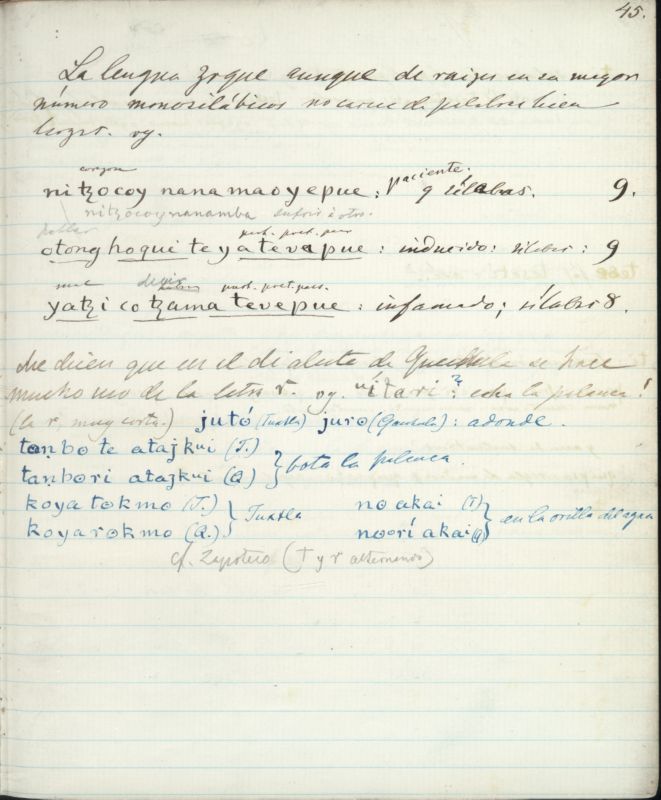 45.
La lengua zoque aunque de raizes en su mayor
número monosilábicos no carece de palabras bien
largas. vg.
corazon
nitzocoy nanamaoyepue : paciente. 9 sílabas. 9.
nitzocoynanamba sufrir á otro.
hablar part. pret. pas.
otong hoqui te ya tevapue : inducido : sílabas : 9
decir part. pret. pas.
yatzi co tzama tevepue : infamado ; sílabas 8.
Me dicen que en el dialecto de Quechula se hace
mucho uso de la letra r. vg. "itari"? : echa la palanca!
(la r, muy corta.) jutó (Tuxtla) juro (Quechula) : adonde.
tanbo te atajkui (T.)
tanbori atajkui (Q) } bota la palanca.
koya tokmo (T.) no akai (T)
koyarokmo (Q.) } Tuxtla noorí akai (Q) } en la orilla del agua
cf. Zapoteco (t y r alternando)